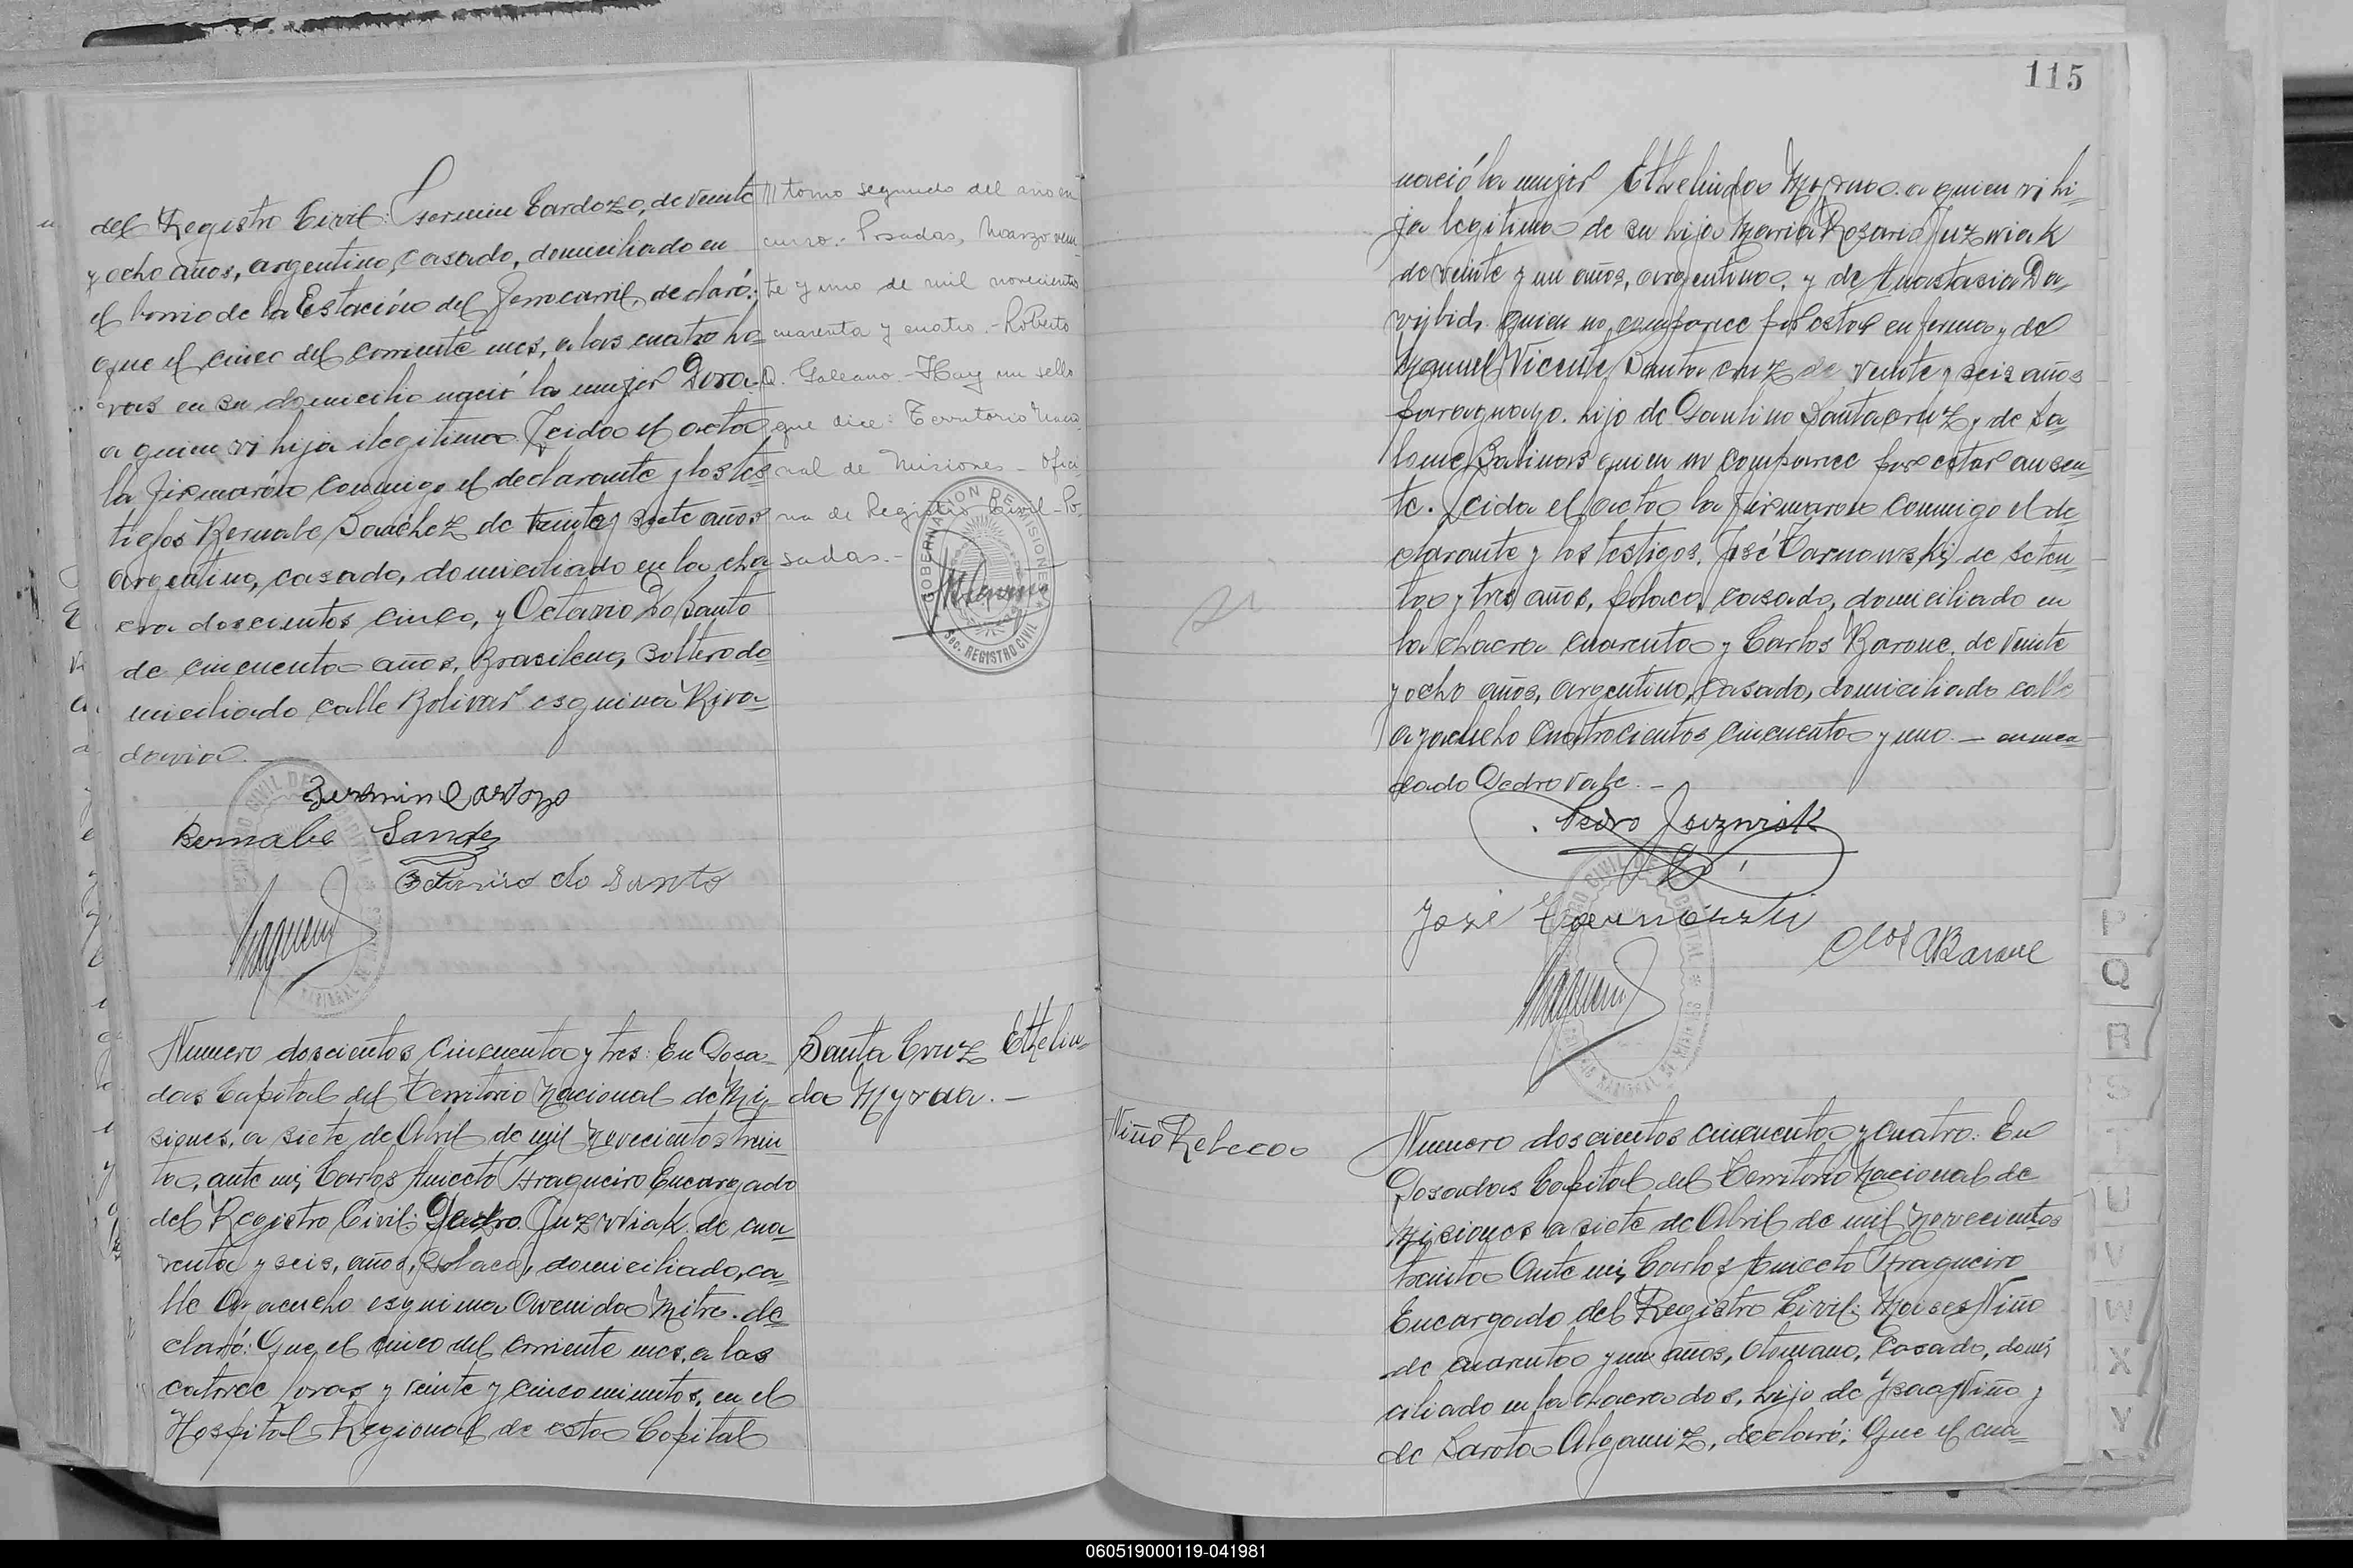 del Registro Civil: Fermin Cardozo, de veinte
y ocho años, argentino, casado, domiciliado en
el barrio de la Estación del Ferrocarril, declaró:
que el cinco del corriente mes, a las cuatro ho-
ras en su domicilio nació la mujer Dora
a quien vi hija ilegitima. Leida el acta
la firmarón conmigo el declarante y los tes-
tigos Bernabe Sanchez de treinta y siete años
argentino, casado, domiciliado en la cha-
cra doscientos cinco, y Octavio Do Santo
de cincuenta años, Brasileno, soltero do-
miciliado calle Bolivar esquina Riva-
davia.
III tomo segundo del año en
curso.- Posadas, Marzo vein-
te y uno de mil novecientos
cuarenta y cuatro.- Roberto
Q. Galeano.- Hay un sello
que dice: Territorio Nacio-
nal de Misiones - Ofici-
na de Registro Civil - Po-
sadas.-
GOBERNACION DE MISIONES
Sec. REGISTRO CIVIL
Fermin Cardozo
Bernabe Sanchez
Octavio do Santo
Numero doscientos cincuenta y tres: En Posa-
das Capital del Territorio Nacional de Mi-
siones, a siete de Abril de mil novecientos trein-
ta, ante mi, Carlos Aniceto Fragueiro Encargado
del Registro Civil: Pedro Juzwiak de cua-
renta y seis, años, Polaco, domiciliado, ca-
lle Ayacucho esquina Avenida Mitre. de-
claró: Que el cinco del corriente mes, a las
catorce horas y veinte y cinco minutos, en el
Hospital Regional de esta Capital
Santa Cruz Ethelin-
da Myrna.-
115
nació la mujer Ethelinda Myrna. a quien vi hi-
ja legitima de su hija Maria Rosario Juzwiak
de veinte y un años, argentina, y de Anastasia Da-
vybida quien no comparece por estar enferma y de
Manuel Vicente Santa Cruz de veinte y seis años
paraguayo. hijo de Paulino Santacruz y de Sa-
lome Salinas quien no comparece por estar ausen-
te. Leida el acta la firmaron conmigo el de-
clarante y los testigos. José Tarnowski, de seten-
ta y tres años, polaco, casado, domiciliado en
la chacra cuarenta y Carlos Barone, de veinte
y ocho años, argentino, casado, domiciliado calle
ayacucho cuatrocientos cincuenta y uno.- enmen-
dado Pedro vale.-
Pedro Juzwiak
José Tarnowski
Clos A Barone
Niño Rebeca
Numero doscientos cincuenta y cuatro: En
Posadas Capital del Territorio Nacional de
Misiones a siete de Abril de mil novecientos
treinta Ante mi, Carlos Aniceto Fragueiro
Encargado del Registro Civil: Moises Niño
de cuarenta y un años, Otomano, Casado, domi-
ciliado en la chacra dos, hijo de Isaac Niño y
de Sarota Algamiz, declaró: Que el cua-
P
Q
R
S
T
U
V
W
X
Y
060519000119-041981